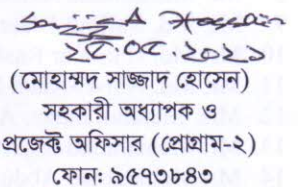 Sajjad Hossain
২৫.০৫.২০২১
(মোহাম্মদ সাজ্জাদ হোসেন)
সহকারী অধ্যাপক ও
প্রজেক্ট অফিসার (প্রোগ্রাম-২)
ফোন: ৯৫৭৩৮৪৩